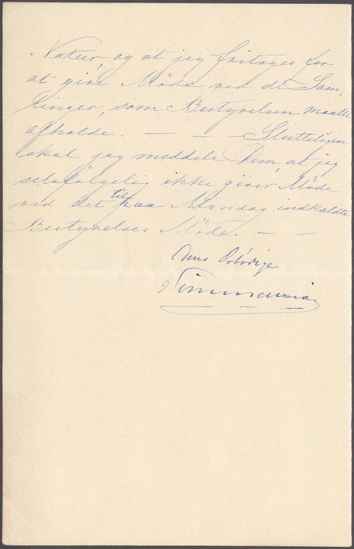 Natur, og at jeg fritages for
at give Møde ved de Sam-
linger, som Bestyrelsen maatte
afholde. — — Sluttelig
skal jeg meddele Dem, at jeg
selvfølgelig ikke giver Møde
ved det til paa Mandag indkaldte
Bestyrelses Møde. — —
Deres Ærbødige